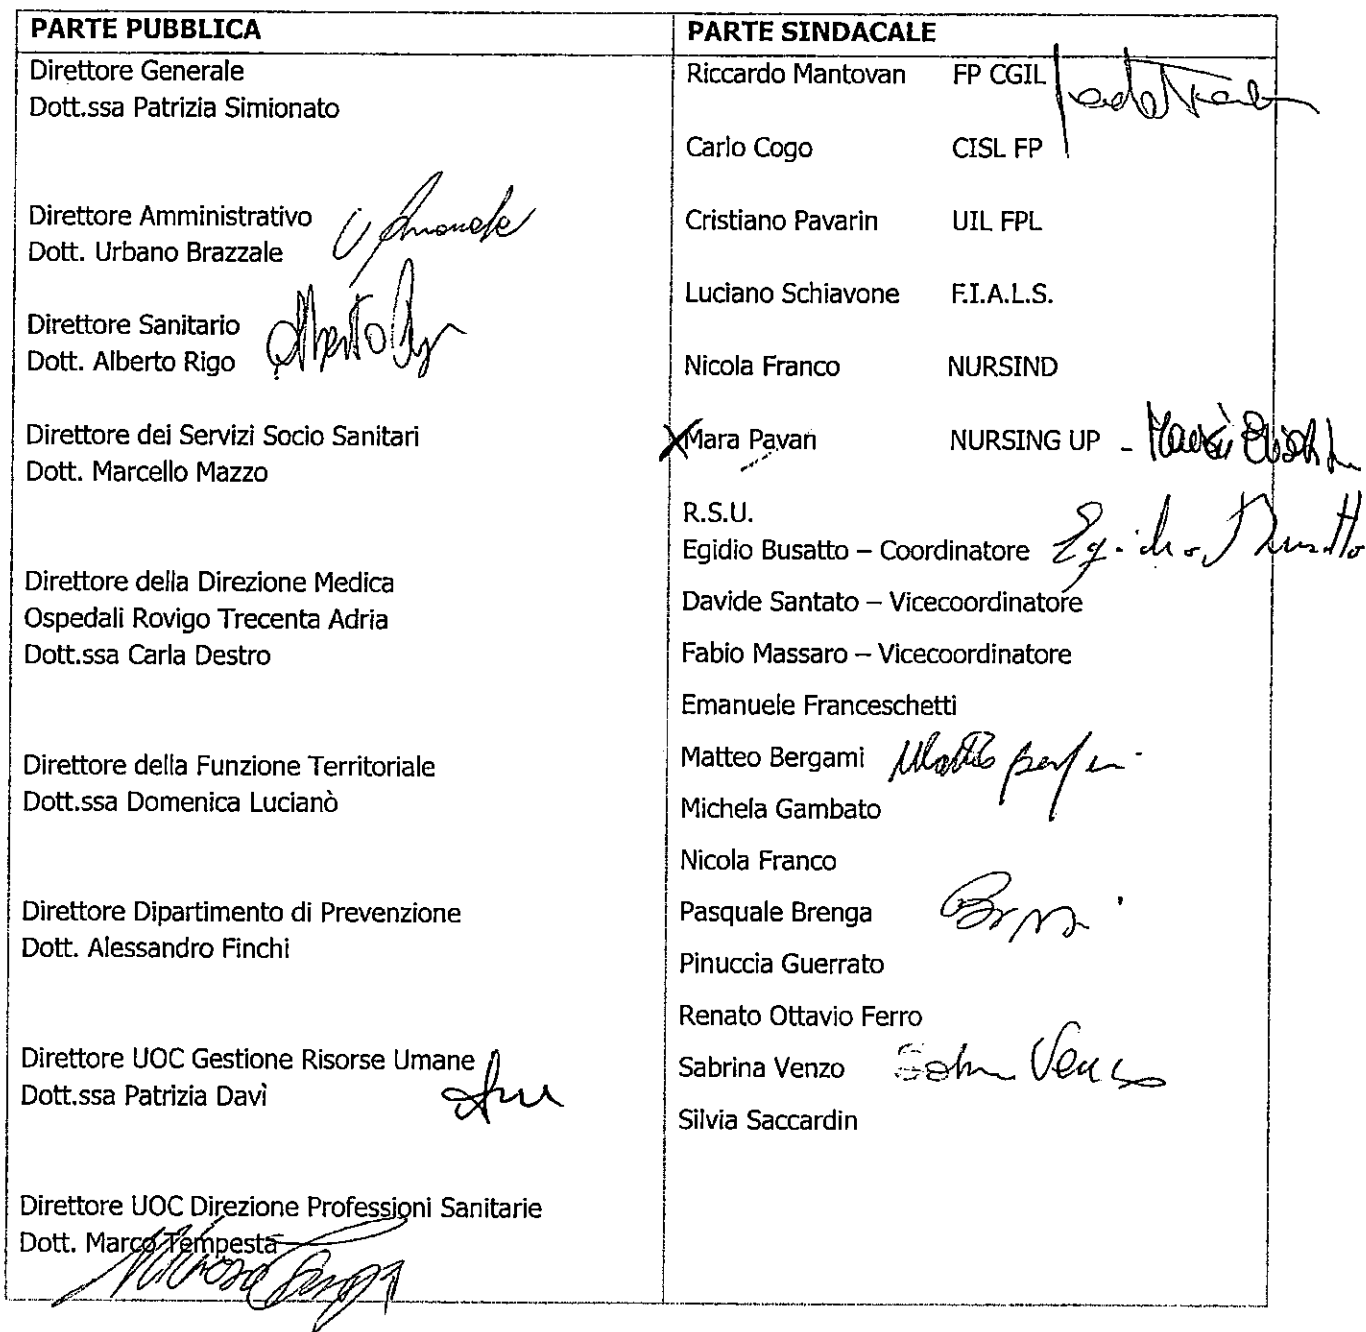 PARTE PUBBLICA
Direttore Generale
Dott.ssa Patrizia Simionato
Direttore Amministrativo
Dott. Urbano Brazzale
Direttore Sanitario
Dott. Alberto Rigo
Direttore dei Servizi Socio Sanitari
Dott. Marcello Mazzo
Direttore della Direzione Medica
Ospedali Rovigo Trecenta Adria
Dott.ssa Carla Destro
Direttore della Funzione Territoriale
Dott.ssa Domenica Lucianò
Direttore Dipartimento di Prevenzione
Dott. Alessandro Finchi
Direttore UOC Gestione Risorse Umane
Dott.ssa Patrizia Davì
Direttore UOC Direzione Professioni Sanitarie
Dott. Marco Tempesta
PARTE SINDACALE
Riccardo Mantovan FP CGIL
Carlo Cogo CISL FP
Cristiano Pavarin UIL FPL
Luciano Schiavone F.I.A.L.S.
Nicola Franco NURSIND
Mara Pavan NURSING UP -
R.S.U.
Egidio Busatto – Coordinatore Egidio Busatto
Davide Santato – Vicecoordinatore
Fabio Massaro – Vicecoordinatore
Emanuele Franceschetti
Matteo Bergami
Michela Gambato
Nicola Franco
Pasquale Brenga
Pinuccia Guerrato
Renato Ottavio Ferro
Sabrina Venzo
Silvia Saccardin